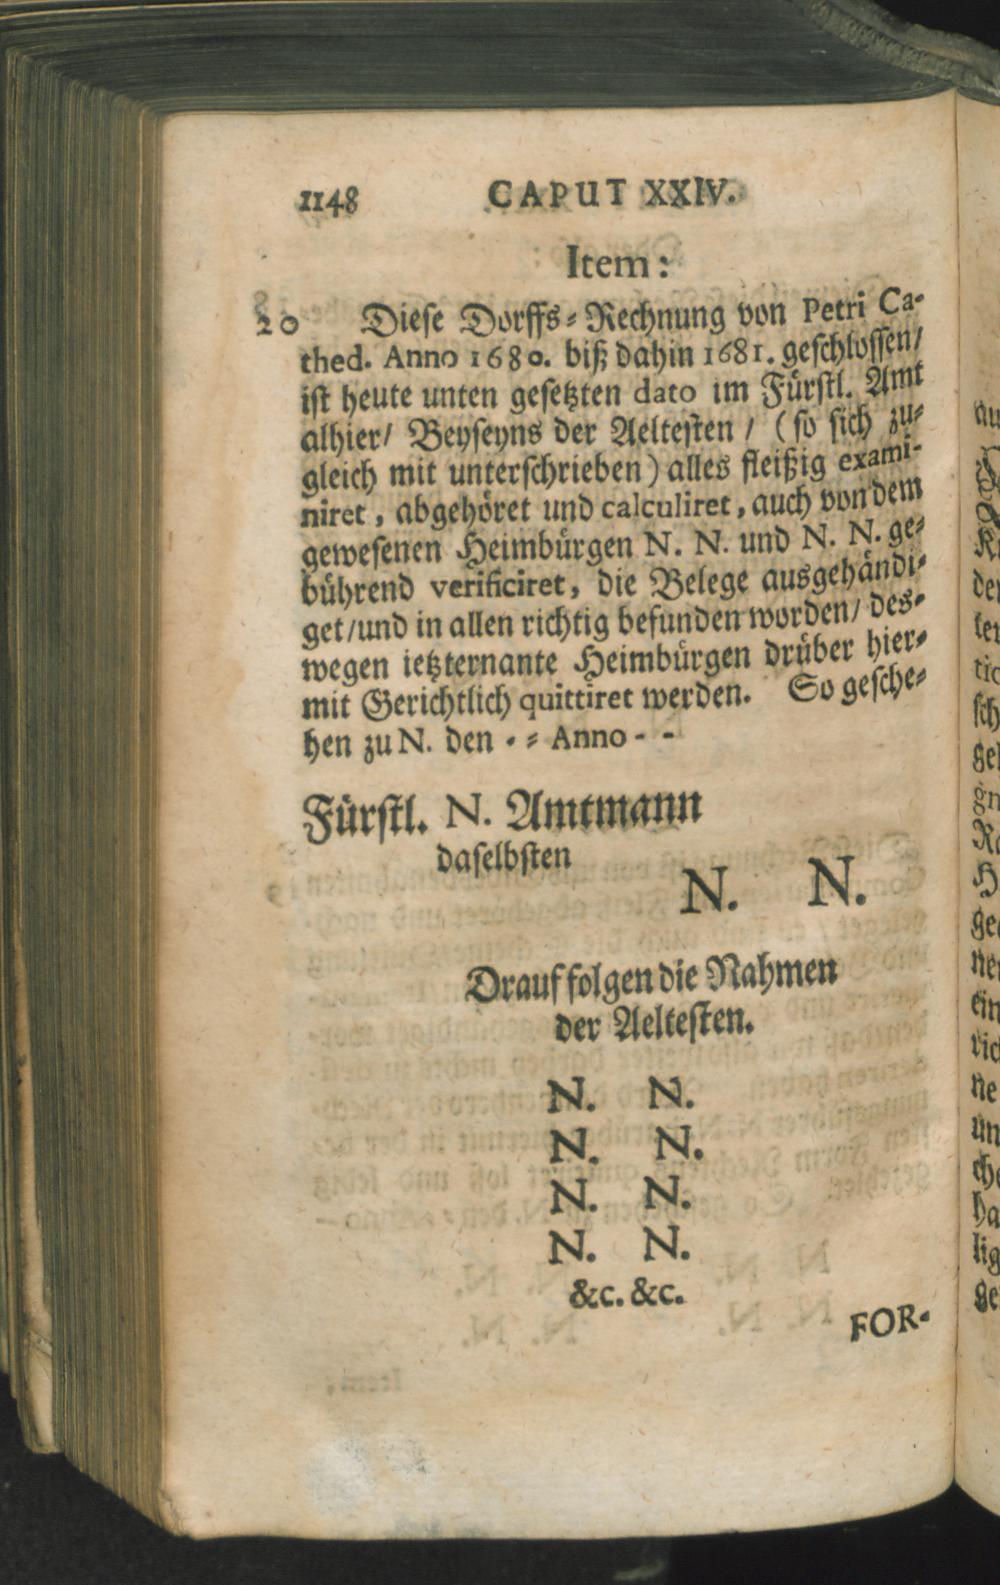 1148 CAPUT XXIV.
Item:
20 Diese Dorffs⸗Rechnung von Petri Ca-
thed. Anno 1680. biß dahin 1681. geschlossen/
ist heute unten gesetzten dato im Fürstl. Amt
alhier/ Beyseyns der Aeltesten / (so sich zu⸗
gleich mit unterschrieben) alles fleißig exami-
niret, abgehöret und calculiret, auch von dem
gewesenen Heimbürgen N. N. und N. N. ge⸗
bührend verificiret, die Belege ausgehändi⸗
get/und in allen richtig befunden worden/ des⸗
wegen ietzternante Heimbürgen drüber hier⸗
mit Gerichtlich quittiret werden. So gesche⸗
hen zu N. den ⸗ ⸗ Anno - -
Fürstl. N. Amtmann
daselbsten
N. N.
Drauf folgen die Nahmen
der Aeltesten.
N. N.
N. N.
N. N.
N. N.
&c. &c.
FOR-